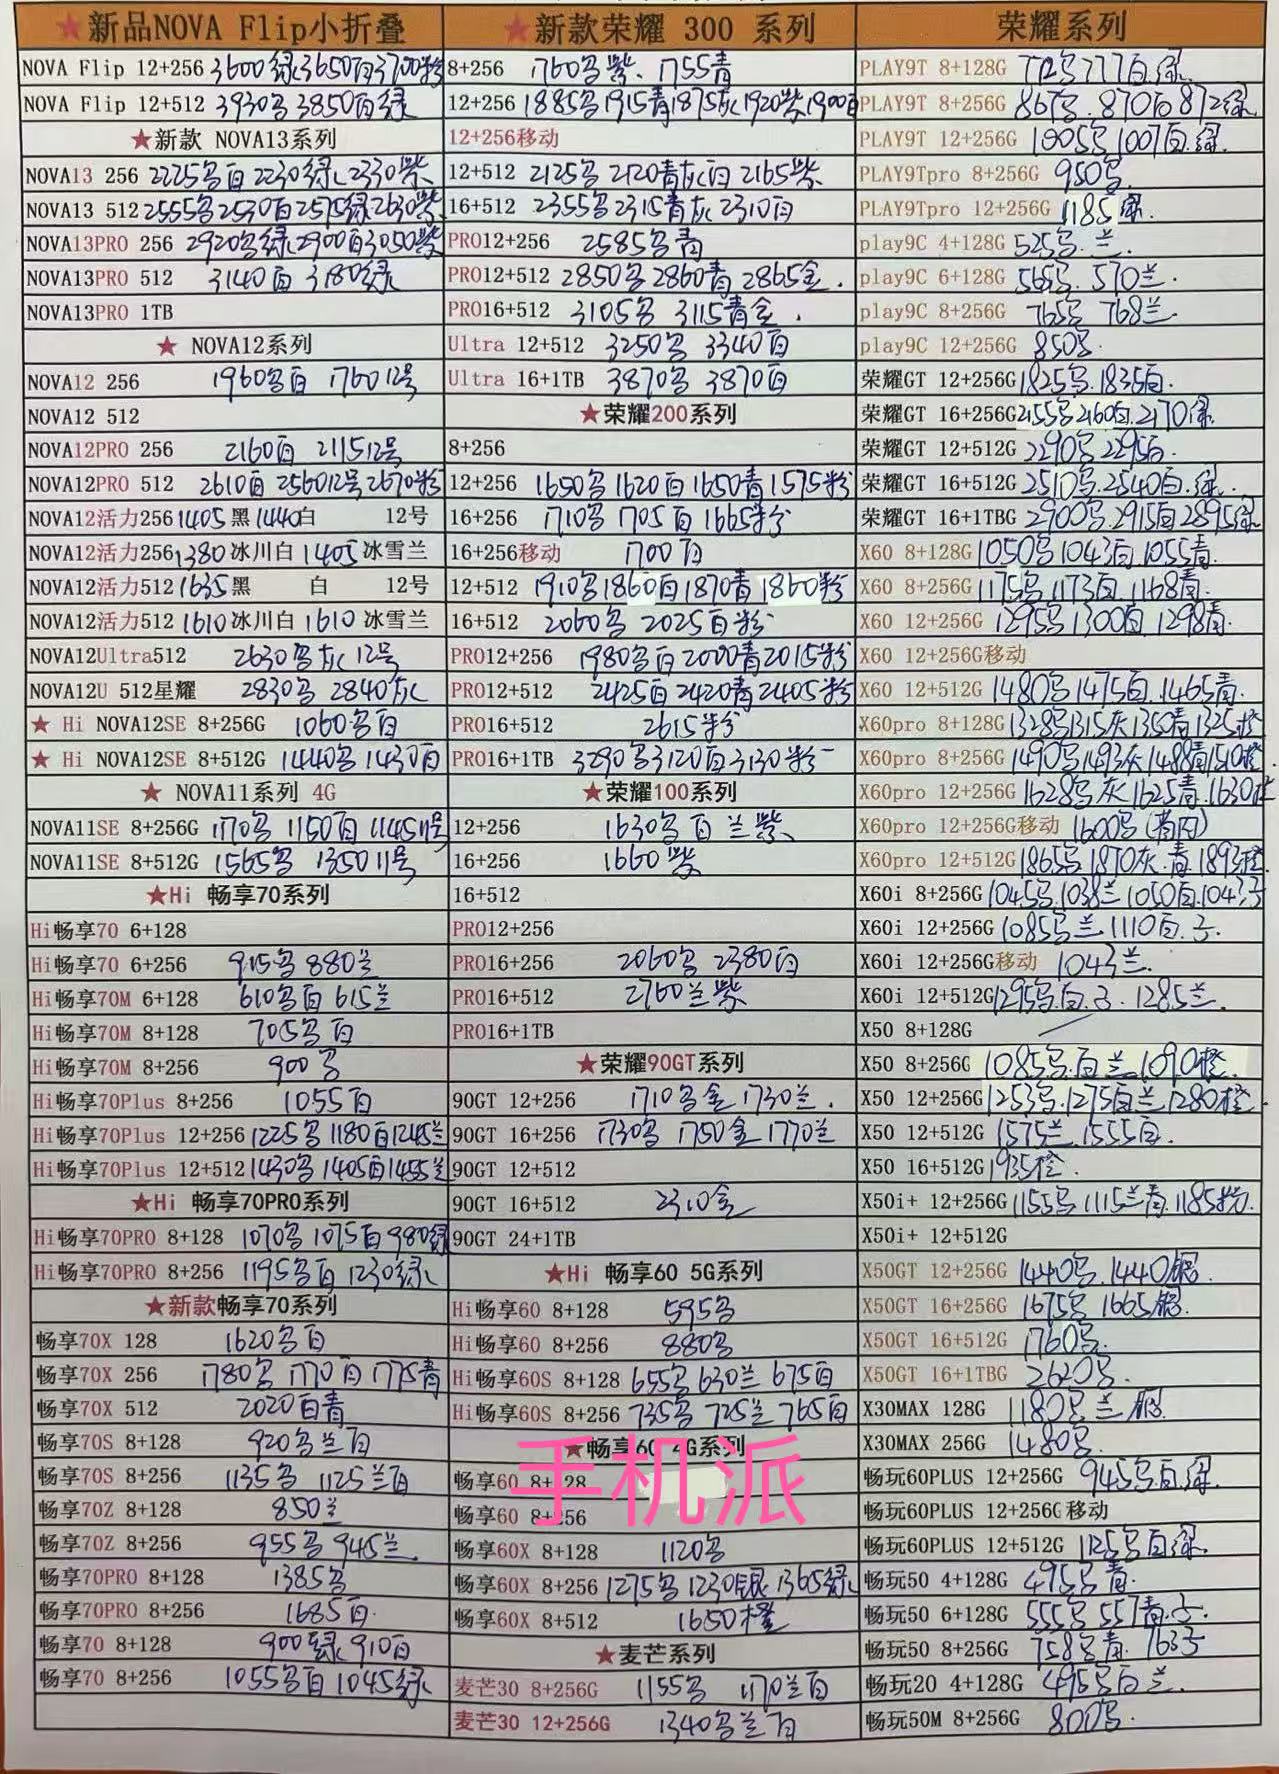 ★新品NOVA Flip小折叠
NOVA Flip 12+256 3600绿3650白3700粉
NOVA Flip 12+512 3930多 3850白绿
★新款 NOVA13系列
NOVA13 256 2225多白 2230绿 2330紫
NOVA13 512 2555多2530白2575绿2630紫
NOVA13PRO 256 2920多绿2900白3050紫
NOVA13PRO 512 3140白 3180绿
NOVA13PRO 1TB
★ NOVA12系列
NOVA12 256 1960多白 1760 12号
NOVA12 512
NOVA12PRO 256 2160白 2115 12号
NOVA12PRO 512 2610白 2560 12号 2670粉
NOVA12活力256 1405黑 1440白 12号
NOVA12活力256 1380冰川白 1405冰雪兰
NOVA12活力512 1635黑 白 12号
NOVA12活力512 1610冰川白 1610冰雪兰
NOVA12Ultra512 2630多灰 12号
NOVA12U 512星耀 2830多 2840灰
★ Hi NOVA12SE 8+256G 1060多白
★ Hi NOVA12SE 8+512G 1440多 1430白
★ NOVA11系列 4G
NOVA11SE 8+256G 1170多 1150白 1145 11号
NOVA11SE 8+512G 1565多 1350 11号
★Hi 畅享70系列
Hi畅享70 6+128
Hi畅享70 6+256 915多 880兰
Hi畅享70M 6+128 610多白 615兰
Hi畅享70M 8+128 705多白
Hi畅享70M 8+256 900多
Hi畅享70Plus 8+256 1055白
Hi畅享70Plus 12+256 1225多 1180白 1245兰
Hi畅享70Plus 12+512 1430多 1405白 1455兰
★Hi 畅享70PRO系列
Hi畅享70PRO 8+128 1070多 1075白 980绿
Hi畅享70PRO 8+256 1195多白 1230绿
★新款畅享70系列
畅享70X 128 1620多白
畅享70X 256 1780多 1770白 1775青
畅享70X 512 2020白青
畅享70S 8+128 920多兰白
畅享70S 8+256 1135多 1125兰白
畅享70Z 8+128 850兰
畅享70Z 8+256 955多 945兰
畅享70PRO 8+128 1385多
畅享70PRO 8+256 1685白
畅享70 8+128 900绿 910白
畅享70 8+256 1055多白 1045绿
★新款荣耀 300 系列
8+256 1760多紫 1755青
12+256 1885多1915青1875灰1920紫1900白
12+256移动
12+512 2125多 2120青灰白 2165紫
16+512 2355多 2315青灰 2310白
PRO12+256 2585多青
PRO12+512 2850多 2860青 2865金
PRO16+512 3105多 3115青金
Ultra 12+512 3250多 3340白
Ultra 16+1TB 3870多 3870白
★荣耀200系列
8+256
12+256 1650多 1620白 1650青 1575粉
16+256 1710多 1705白 1665粉
16+256移动 1700白
12+512 1910多 1860白 1870青 1860粉
16+512 2060多 2025白粉
PRO12+256 1980多白 2000青 2015粉
PRO12+512 2425白 2420青 2405粉
PRO16+512 2615粉
PRO16+1TB 3290多 3120白 3130粉
★荣耀100系列
12+256 1630多白兰紫
16+256 1660紫
16+512
PRO12+256
PRO16+256 2060多 2380白
PRO16+512 2760兰紫
PRO16+1TB
★荣耀90GT系列
90GT 12+256 1710多金 1730兰
90GT 16+256 1730多 1750金 1770兰
90GT 12+512
90GT 16+512 2310金
90GT 24+1TB
★Hi 畅享60 5G系列
Hi畅享60 8+128 595多
Hi畅享60 8+256 880多
Hi畅享60S 8+128 655多 630兰 675白
Hi畅享60S 8+256 735多 725兰 765白
★畅享60 4G系列
手机派
畅享60 8+128
畅享60 8+256
畅享60X 8+128 1120多
畅享60X 8+256 1275多 1230银 1365绿
畅享60X 8+512 1650橙
★麦芒系列
麦芒30 8+256G 1155多 1170兰白
麦芒30 12+256G 1340多兰白
荣耀系列
PLAY9T 8+128G 772多 777白.绿
PLAY9T 8+256G 867多. 870白 872绿
PLAY9T 12+256G 1005多 1007白.绿
PLAY9Tpro 8+256G 950多
PLAY9Tpro 12+256G 1185绿
play9C 4+128G 525多.兰
play9C 6+128G 565多. 570兰
play9C 8+256G 765多 768兰
play9C 12+256G 850多
荣耀GT 12+256G 1825多.1835白
荣耀GT 16+256G 2155多 2160白.2170绿
荣耀GT 12+512G 2290多 2295白
荣耀GT 16+512G 2510多.2540白.绿
荣耀GT 16+1TBG 2900多.2915白 2895绿
X60 8+128G 1050多 1043白.1055青
X60 8+256G 1175多 1173白 1168青
X60 12+256G 1295多 1300白 1298青
X60 12+256G移动
X60 12+512G 1480多 1475白.1465青
X60pro 8+128G 1328多1315灰1350青1325橙
X60pro 8+256G 1490多1493灰1488青1510橙
X60pro 12+256G 1628多灰 1625青.1630橙
X60pro 12+256G移动 1600多
X60pro 12+512G 1865多 1870灰.青 1893橙
X60i 8+256G 1045多.1038兰 1050白.1043子
X60i 12+256G 1085多兰.1110白.子
X60i 12+256G移动 1043兰
X60i 12+512G 1295多.白.子.1285兰
X50 8+128G
X50 8+256G 1085多.白 兰 1090橙
X50 12+256G 1253多.1275白兰 1280橙
X50 12+512G 1575兰.1555白
X50 16+512G 1935橙
X50i+ 12+256G 1155多 1115兰青.1185粉
X50i+ 12+512G
X50GT 12+256G 1440多.1440银
X50GT 16+256G 1675多 1665银
X50GT 16+512G 1760多
X50GT 16+1TBG 2620多
X30MAX 128G 1180多兰.银
X30MAX 256G 1480多
畅玩60PLUS 12+256G 945多白.绿
畅玩60PLUS 12+256G移动
畅玩60PLUS 12+512G 1125多白绿
畅玩50 4+128G 495多青
畅玩50 6+128G 555多 557青.子
畅玩50 8+256G 758多青. 763子
畅玩20 4+128G 495多白兰
畅玩50M 8+256G 800多